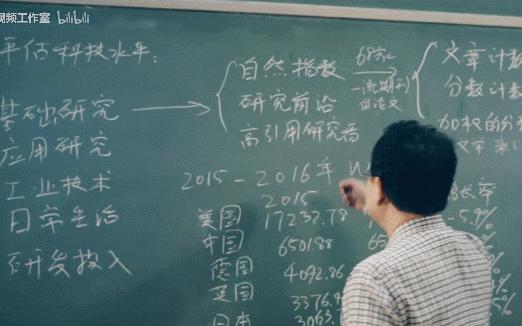 视频工作室 bilibili
评估科技水平：
基础研究
应用研究
工业技术
日常生活
研发投入
自然指数
研究前沿
高引用研究者
68
一流期刊
文章计数
分数计数
2015-2016年
2015
长率
美国 17232.78 -5.9%
中国 6501.88
德国 4092.86
英国 3376.4
日本